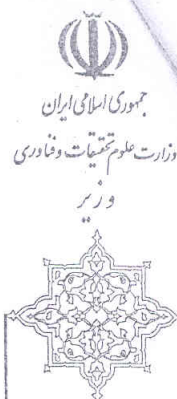 جمهوری اسلامی ایران
وزارت علوم تحقیقات و فناوری
وزیر